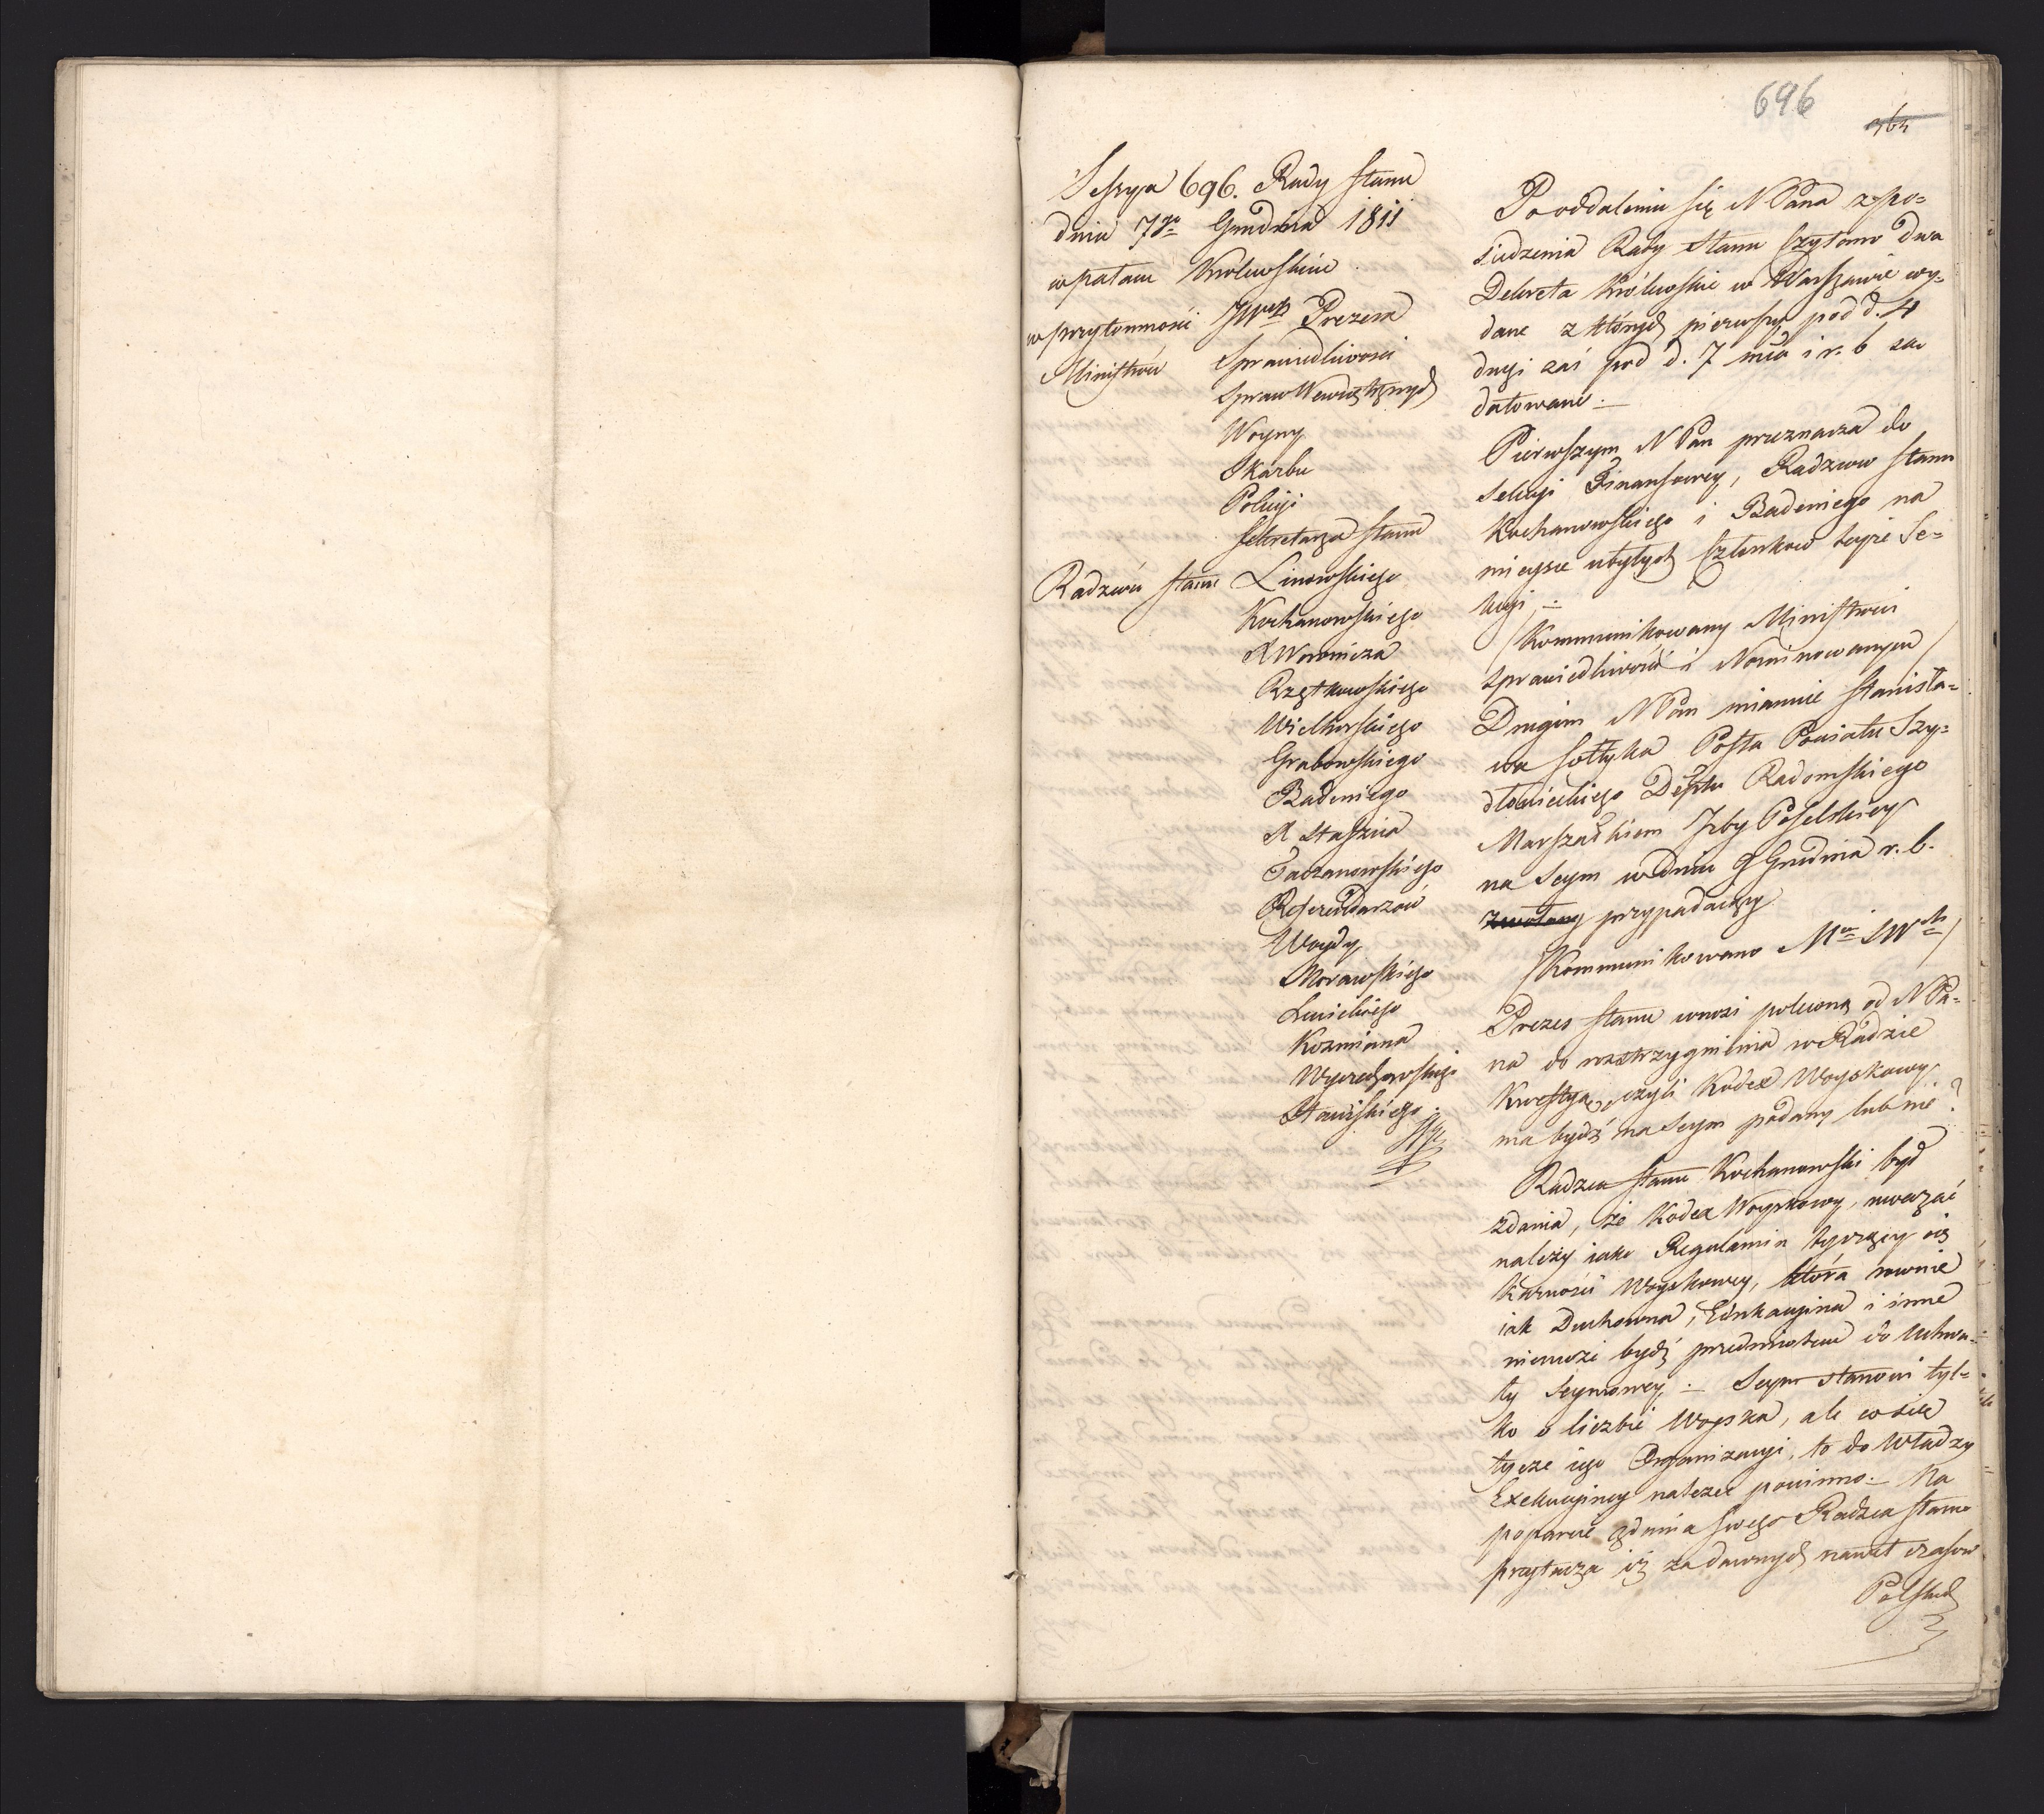 696
365
Sessya 696. Rady Stanu
dnia 7go Grudnia 1811
w pałacu Królewskim
w przytomności JWch Prezesa
Ministrów Sprawiedliwości
Spraw Wewnętrznych
Woyny
Skarbu
Policyi
Sekretarza Stanu
Radzców Stanu Linowskiego
Kochanowskiego
X Woronicza
Rzętkowskiego
Wielhorskiego
Grabowskiego
Badeniego
X Staszica
Taczanowskiego
Referendarzów
Woydy
Morawskiego
Łuwickiego
Kozmiana
Wyczechowskiego
Stawiskiego
Po oddaleniu się N Pana z po=
siedzenia Rady Stanu czytano dwa
Dekreta Królewskie w Warszawie wy=
dane z których pierwszy pod d. 4
drugi zaś pod d. 7 mca i r. b są
datowane. –
Pierwszym N Pan przeznacza do
Sekcyi Finansowey, Radzców Stanu
Kochanowskiego i Badeniego na
mieysce ubyłych Członków teyże Se=
kcyi, –
/Kommunikowany Ministrowi
Sprawiedliwości i Nominowanym/
Drugim N Pan mianuie Stanisła=
wa Sołtyka Posła Powiatu Szy=
dłowieckiego Deptu Radomskiego
Marszałkiem Izby Poselskiey
na Seym w dniu 9 Grudnia r. b.
zwołany przypadaiący
/Kommunikowano Mwi SWch/
Prezes Stanu wnosi poleconą od N Pa=
na do rozstrzygnienia w Radzie
Kwestyą, czyli Kodex Woyskowy
ma bydź na Seym podany lub nie?
Radzca Stanu Kochanowski był
zdania, że Kodex Woyskowy, uważać
należy iako Regulamin tyczący się
Karności Woyskowey, która rownie
iak Duchowna, Edukacyina i inne
niemoże bydź przedmiotem do Uchwa=
ły Seymowey, – Seym stanowi tyl=
ko o liczbie Woyska, ale co się
tycze iego Organizacyi, to do Władzy
Exekucyiney należeć powinno. – Na
poparcie zdania swego Radzca Stanu
przytacza iż za dawnych nawet czasow
Polskich